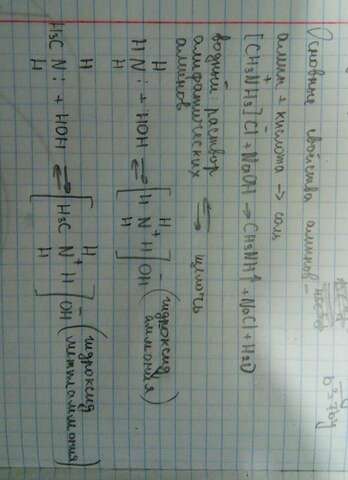 Основные свойства аминов –
амин + кислота → соль
[CH3NH3]⁺Cl⁻ + NaOH → CH3NH↑ + NaCl + H2O
водный раствор
алифатических ⇌ щелочь
аминов
H H
H N: + HOH ⇌ [H N⁺ H] OH⁻ (гидроксид
H H аммония)
H H
H3C N: + HOH ⇌ [H3C N⁺ H] OH⁻ (гидроксид
H H метиламмония)